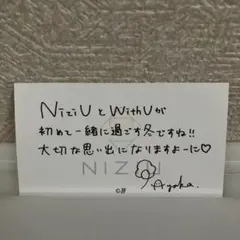 NiziUとWithUが
初めて一緒に過ごす冬ですね!!
大切な思い出になりますよーに♡
NIZIU
Ayaka.